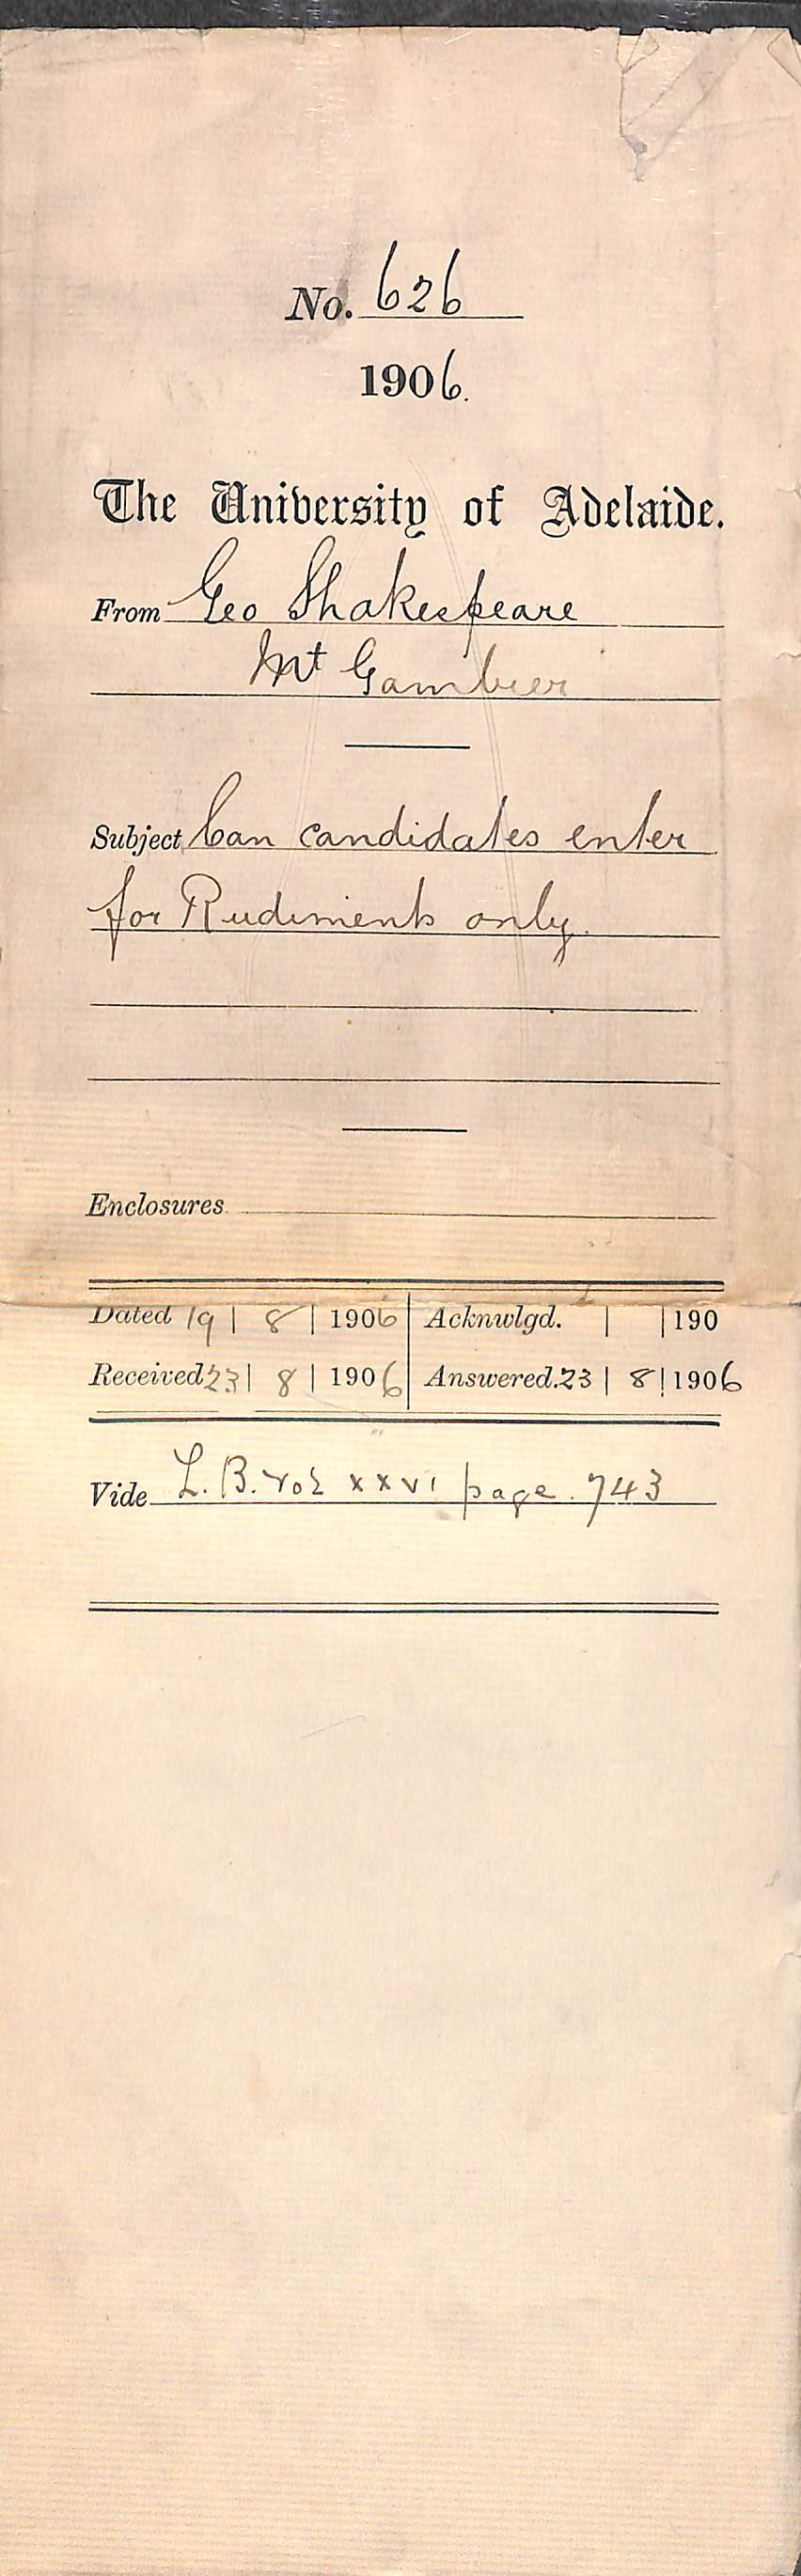 No. 626
1906.
The University of Adelaide.
From Geo Shakespeare
Mt Gambier
Subject Can candidates enter
for Rudiments only.
Enclosures
Dated 19 | 8 | 1906 | Acknwlgd. | | 190
Received 23 | 8 | 1906 | Answered. 23 | 8 | 1906
Vide L.B. vol xxvi page. 743